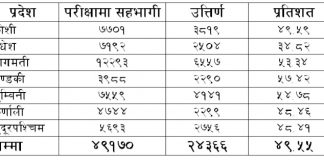 प्रदेश परीक्षामा सहभागी उत्तिर्ण प्रतिशत
कोशी ७७०१ ३८१९ ४९.५९
मधेश ७१९२ २५०४ ३४.८२
बागमती १२२९३ ६५५७ ५३.३४
गण्डकी ३९८८ २२९० ५७.४२
लुम्बिनी ७५५९ ४१४१ ५४.७८
कर्णाली ४७४४ २२९९ ४८.४६
सुदूरपश्चिम ५६९३ २७५६ ४८.४१
जम्मा ४९१७० २४३६६ ४९.५५